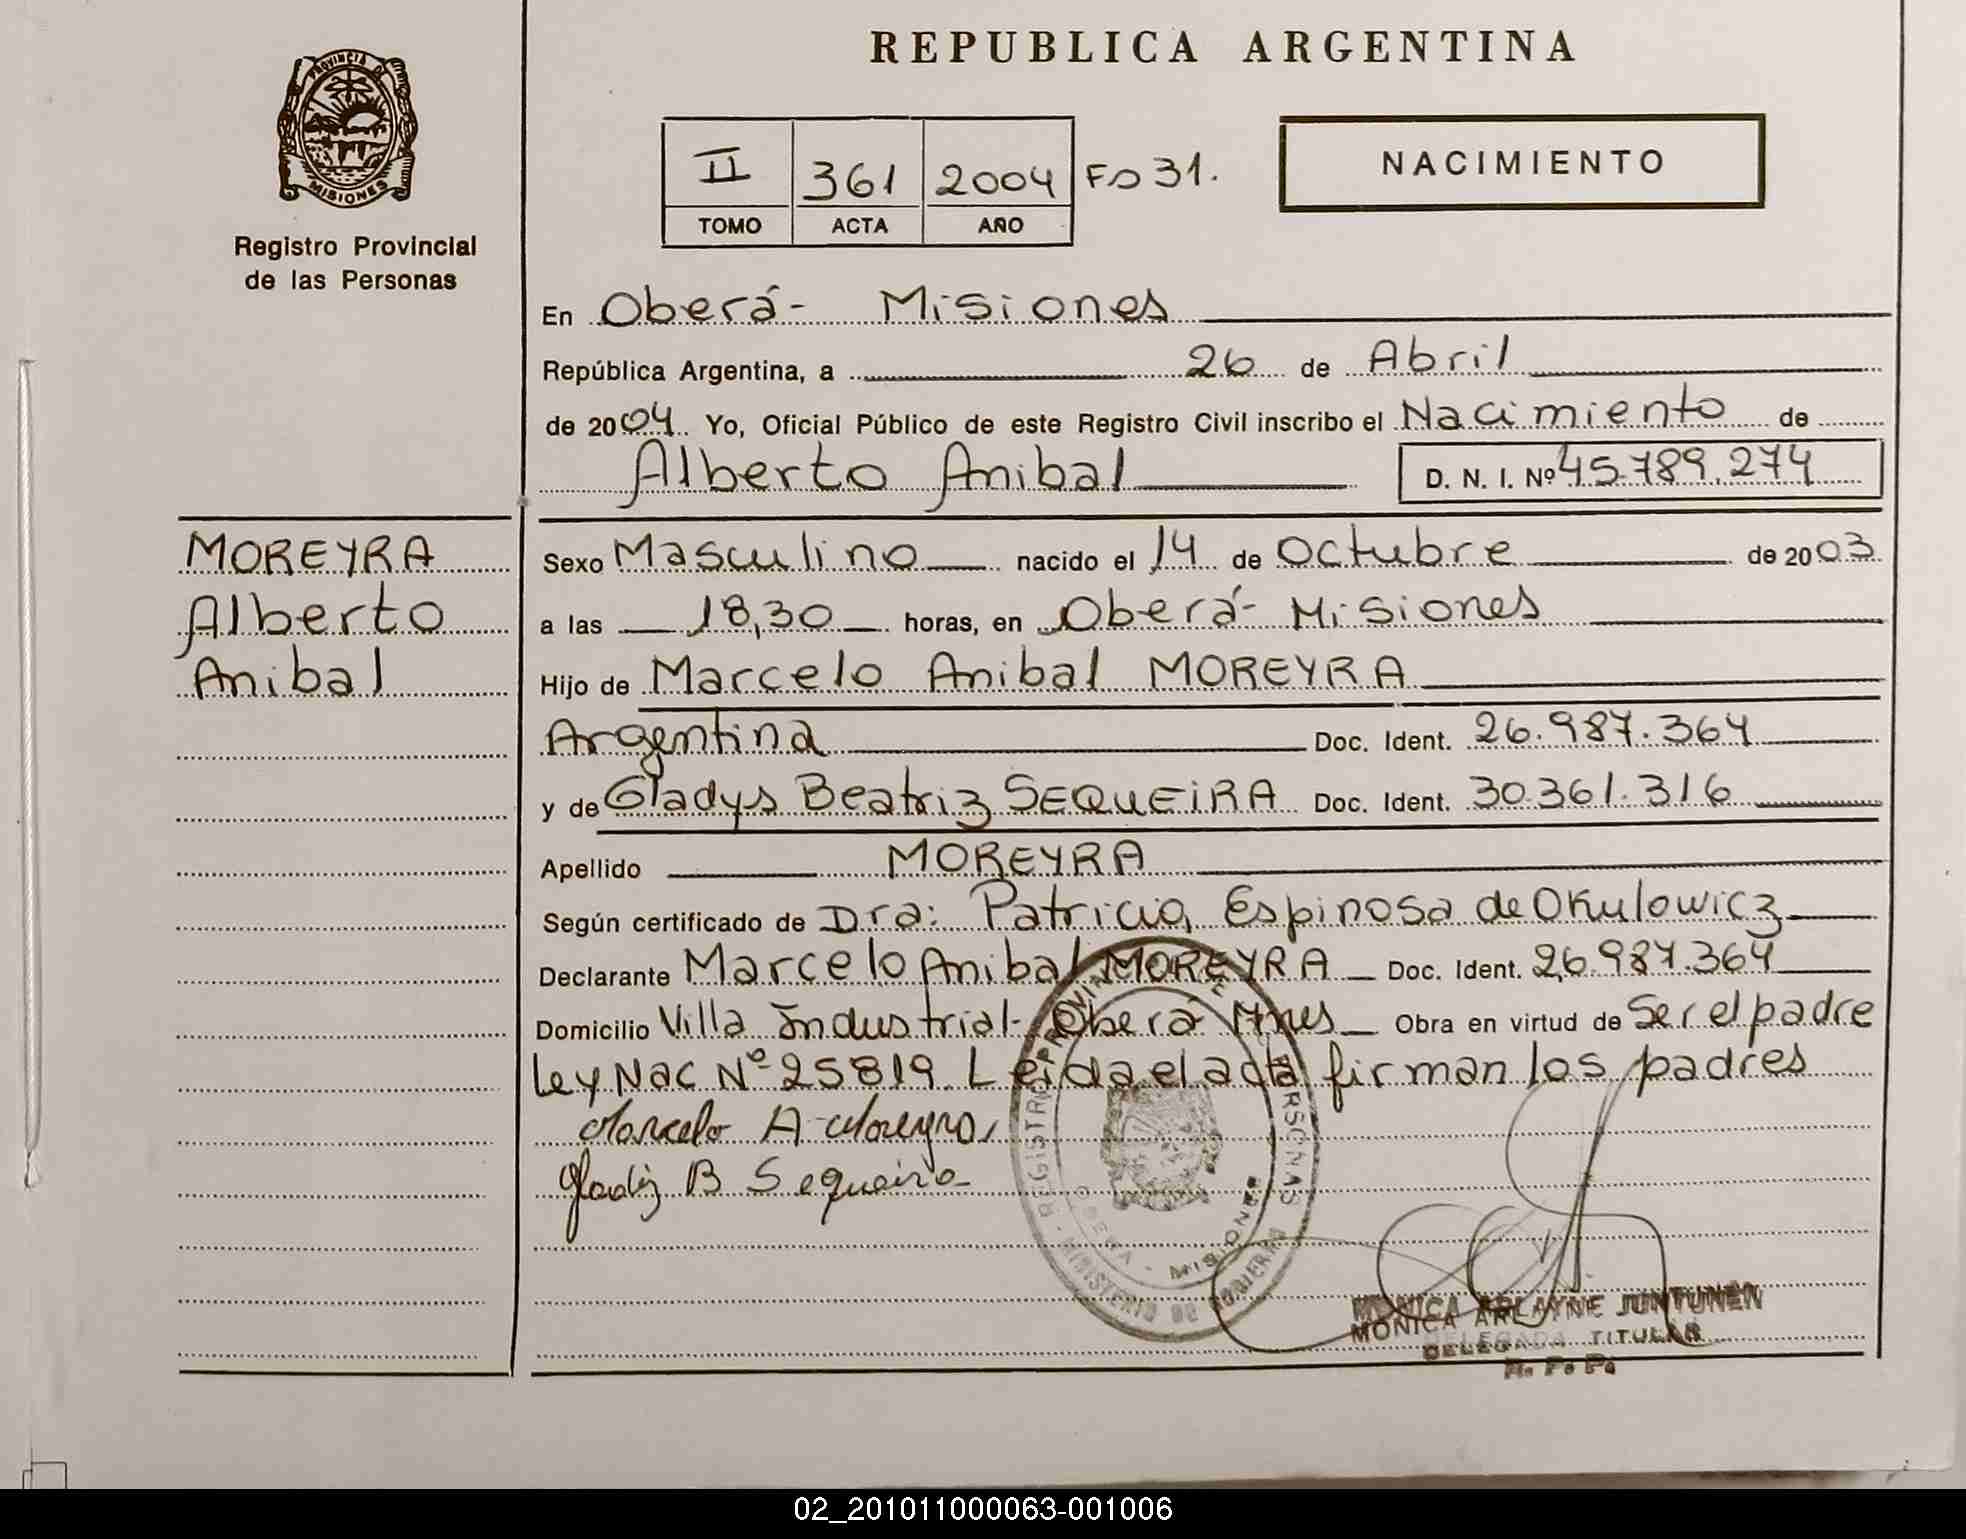 REPUBLICA ARGENTINA
PROVINCIA DE
MISIONES
Registro Provincial
de las Personas
II 361 2004 Fo 31.
TOMO ACTA AÑO
NACIMIENTO
En Oberá- Misiones
República Argentina, a 26 de Abril
de 2004. Yo, Oficial Público de este Registro Civil inscribo el Nacimiento de
Alberto Anibal D. N. I. Nº 45.789.274
MOREYRA
Alberto
Anibal
Sexo Masculino nacido el 14 de Octubre de 2003.
a las 18,30 horas, en Oberá- Misiones
Hijo de Marcelo Anibal MOREYRA
Argentina Doc. Ident. 26.987.364
y de Gladys Beatriz SEQUEIRA Doc. Ident. 30.361.316
Apellido MOREYRA
Según certificado de Dra: Patricia Espinosa de Okulowicz
Declarante Marcelo Anibal MOREYRA Doc. Ident. 26.987.364
Domicilio Villa Industrial- Oberá Mnes Obra en virtud de Ser el padre
Ley Nac Nº 25819. Leida el acta firman los padres
Marcelo A Moreyra
Gladiz B Sequeira
REGISTRO PROVINCIAL DE PERSONAS
OBERA - MISIONES
MINISTERIO DE GOBIERNO
MONICA ARLAYNE JUNTUNEN
DELEGADA TITULAR
R. P. P.
02_201011000063-001006